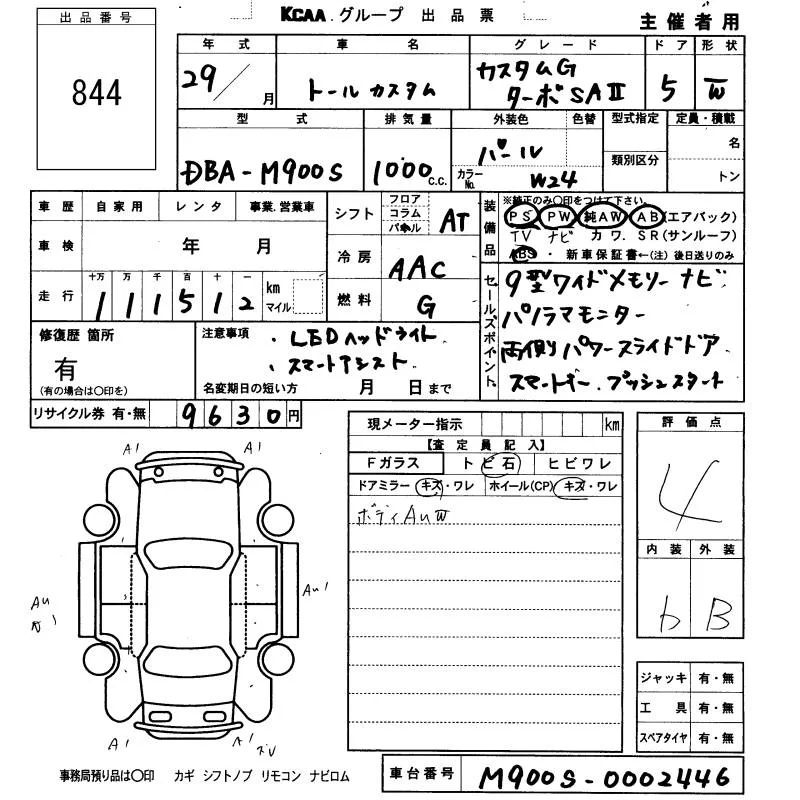 出品番号
844
KCAA. グループ 出品票
主催者用
年式 車名 グレード ドア 形状
29/ 月 トール カスタム カスタムG ターボSAⅡ 5 W
型式 排気量 外装色 色替 型式指定 定員・積載
DBA-M900S 1000 C.C. パール カラーNo. W24 類別区分 名 トン
車歴 自家用 レンタ 事業.営業車
車検 年 月
走行 十万 万 千 百 十 一 km マイル
1 1 1 5 1 2
シフト フロア コラム パネル AT
冷房 AAC
燃料 G
装備品
※純正のみ○印をつけて下さい。
PS PW 純AW AB (エアバック)
TV ナビ カワ. SR (サンルーフ)
ABS ・ 新車保証書←(注) 後日送りのみ
セールスポイント
9型ワイドメモリーナビ
パノラマモニター
両側パワースライドドア
スマートキー.プッシュスタート
修復歴 箇所
有
(有の場合は○印を)
注意事項
・LEDヘッドライト
・スマートアシスト
名変期日の短い方 月 日まで
リサイクル券 有・無 9630円
現メーター指示 km
【査定員記入】
Fガラス トビ石 ヒビワレ
ドアミラー キズ・ワレ ホイール(CP) キズ・ワレ
ボディAuW
評価点
4
内装 外装
b B
A1 A1
Au
A1 A1
Au1
ジャッキ 有・無
工具 有・無
スペアタイヤ 有・無
事務局預り品は○印 カギ シフトノブ リモコン ナビロム
車台番号 M900S-0002446